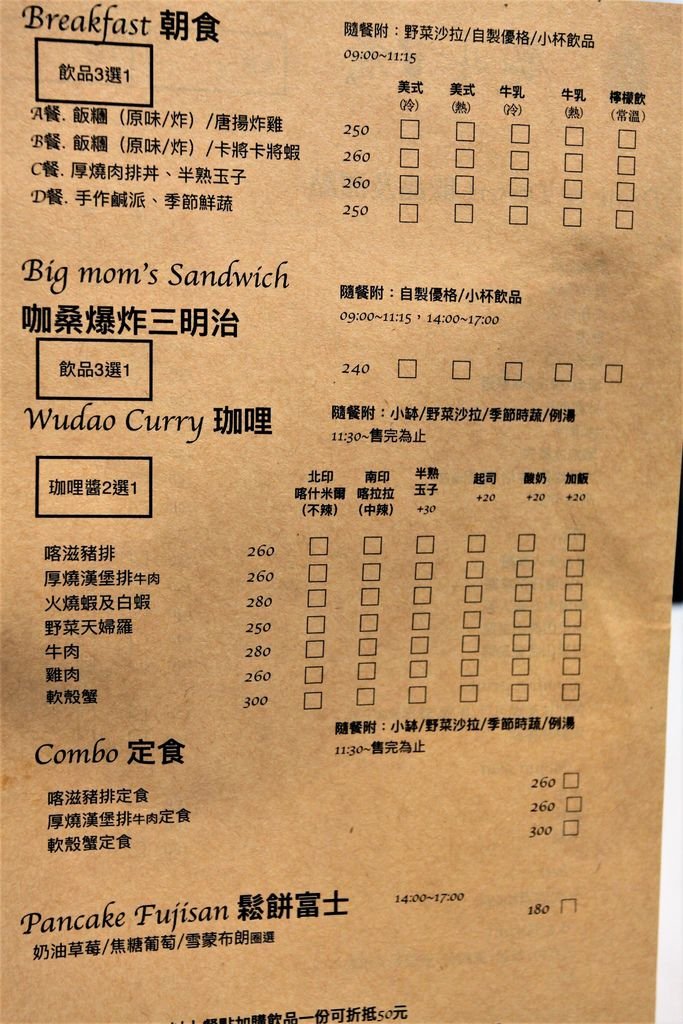 Breakfast 朝食
隨餐附：野菜沙拉/自製優格/小杯飲品
09:00~11:15
飲品3選1
美式（冷） 美式（熱） 牛乳（冷） 牛乳（熱） 檸檬飲（常溫）
A餐. 飯糰（原味/炸）/唐揚炸雞 250
B餐. 飯糰（原味/炸）/卡將卡將蝦 260
C餐. 厚燒肉排丼、半熟玉子 260
D餐. 手作鹹派、季節鮮蔬 250
Big mom's Sandwich
咖桑爆炸三明治
隨餐附：自製優格/小杯飲品
09:00~11:15，14:00~17:00
飲品3選1
240
Wudao Curry 珈哩
隨餐附：小缽/野菜沙拉/季節時蔬/例湯
11:30~售完為止
珈哩醬2選1
北印喀什米爾（不辣） 南印喀拉拉（中辣） 半熟玉子+30 起司+20 酸奶+20 加飯+20
喀滋豬排 260
厚燒漢堡排牛肉 260
火燒蝦及白蝦 280
野菜天婦羅 250
牛肉 280
雞肉 260
軟殼蟹 300
Combo 定食
隨餐附：小缽/野菜沙拉/季節時蔬/例湯
11:30~售完為止
喀滋豬排定食 260
厚燒漢堡排牛肉定食 260
軟殼蟹定食 300
Pancake Fujisan 鬆餅富士
14:00~17:00
180
奶油草莓/焦糖葡萄/雪蒙布朗圈選
餐點加購飲品一份可折抵50元